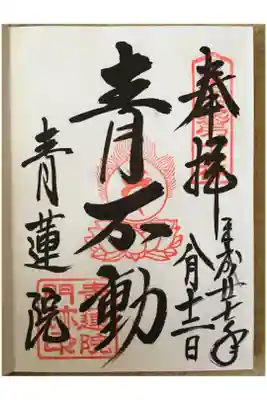 奉拝
平成廿年
八月十二日
青不動
青蓮院
青蓮院
門跡印